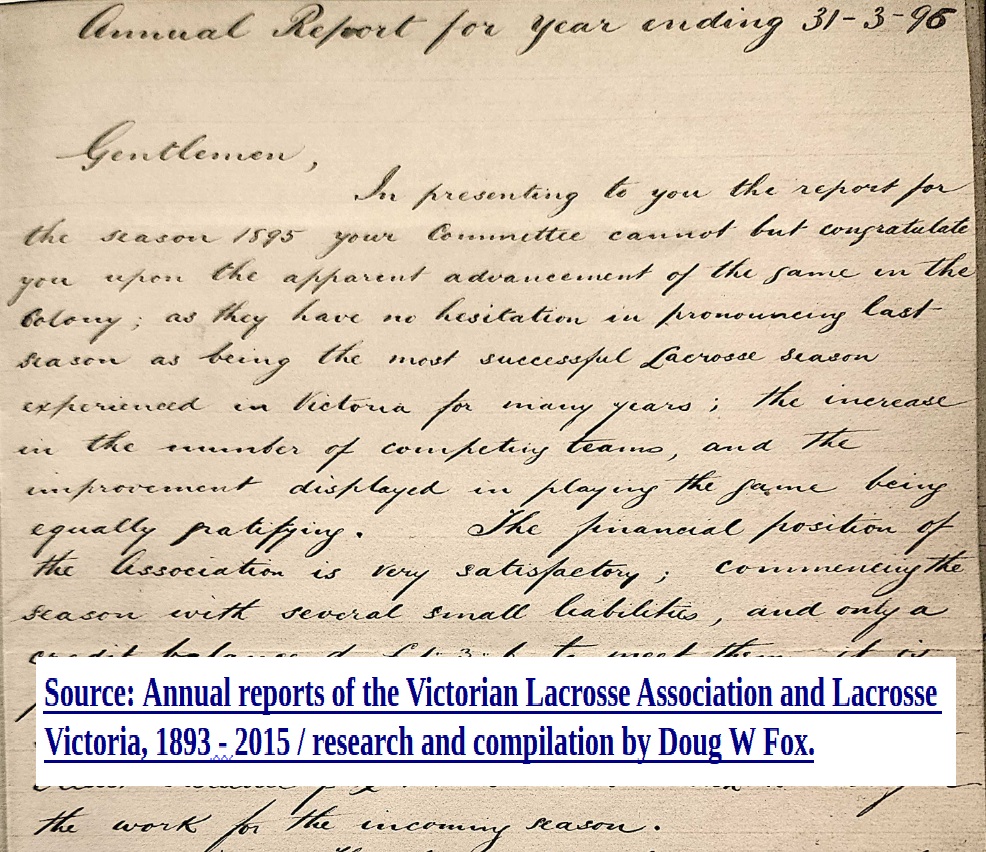 Annual Report for Year ending 31-3-96
Gentlemen,
In presenting to you the report for
the season 1895 your Committee cannot but congratulate
you upon the apparent advancement of the game in the
Colony; as they have no hesitation in pronouncing last
season as being the most successful Lacrosse season
experienced in Victoria for many years; the increase
in the number of competing teams, and the
improvement displayed in playing the game being
equally gratifying. The financial position of
the Association is very satisfactory; commencing the
season with several small liabilities, and only a
credit balance to meet them it is
Source: Annual reports of the Victorian Lacrosse Association and Lacrosse
Victoria, 1893 - 2015 / research and compilation by Doug W Fox.
the work for the incoming season.